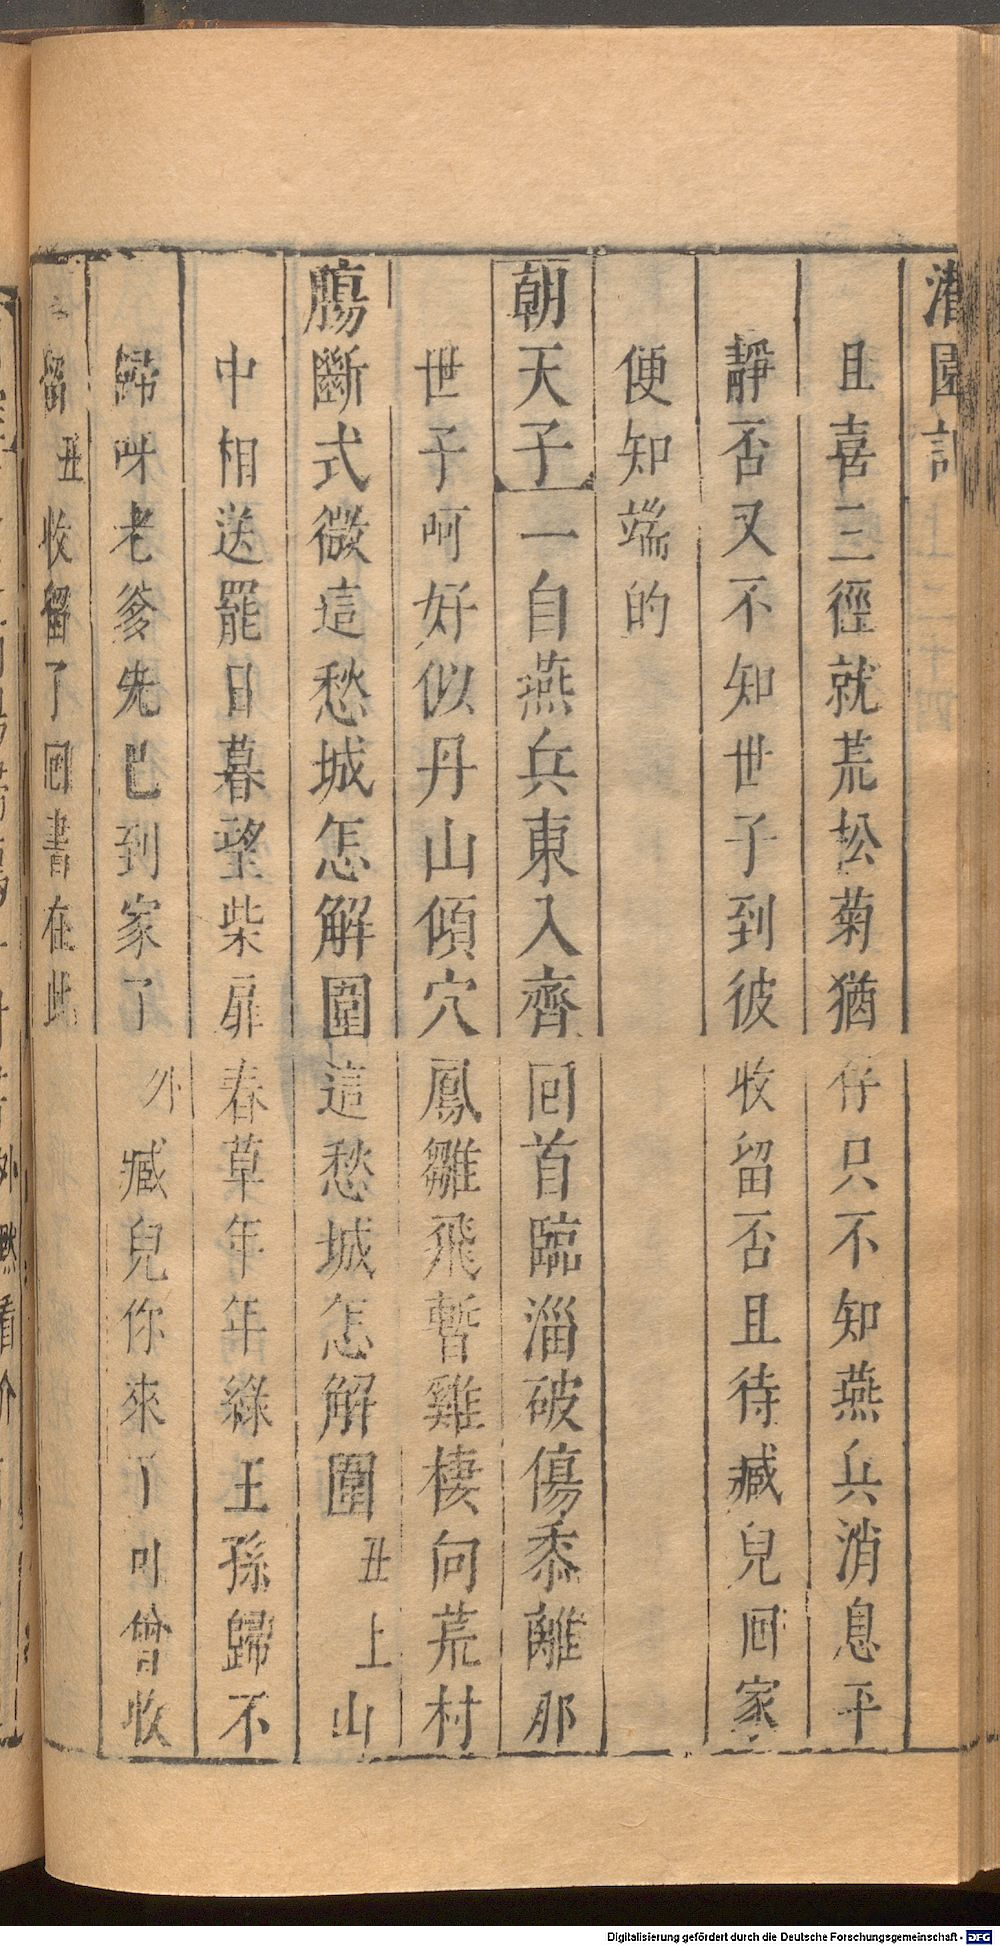 灌園記
且喜三徑就荒松菊猶仔只不知燕兵消息平
靜否又不知世子到彼收留否且待臧兒回家
便知端的
朝天子一自燕兵東入齊回首臨淄破傷黍離那
世子呵好似丹山傾穴鳳雛飛暫雞棲向荒村
腸斷式微這愁城怎解圍這愁城怎解圍丑上山
中相送罷日暮望柴扉春草年年綠王孫歸不
歸呀老爹先已到家了外臧兒你來了可曾收
留丑收留了回書在此
Digitalisierung gefördert durch die Deutsche Forschungsgemeinschaft - DFG